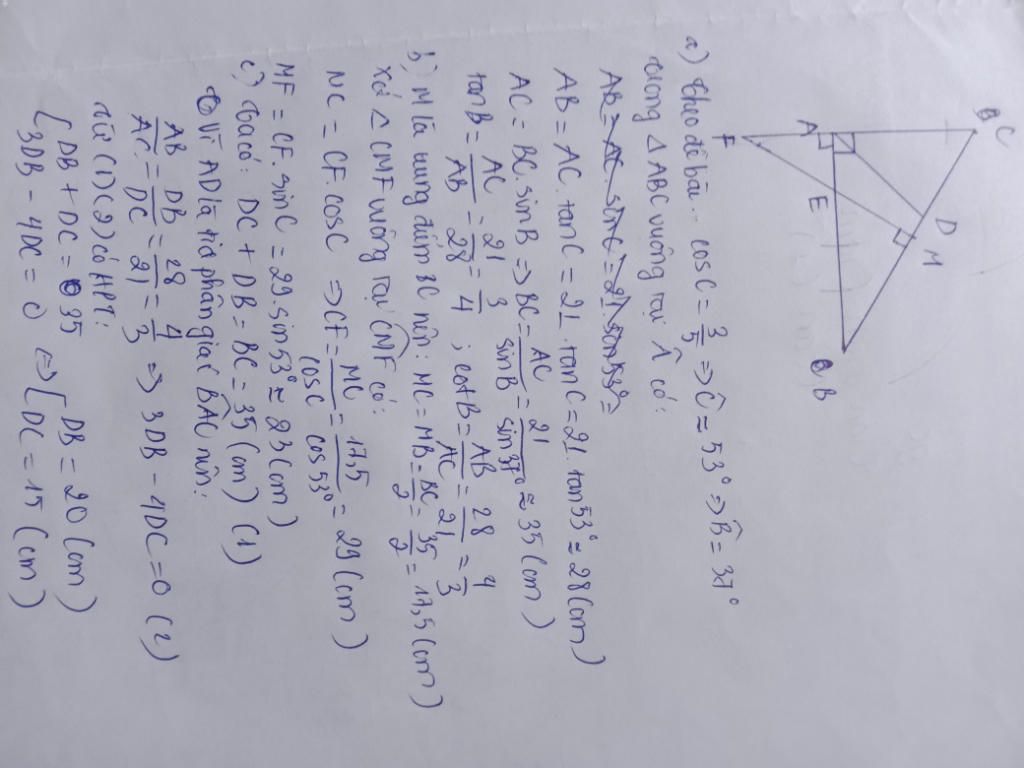 C
D
M
B
A
E
F
a) Theo đề bài.. cosC = 3/5 => Ĉ ≈ 53° => B̂ = 37°
trong △ABC vuông tại Â có:
AB = AC . tanC = 21 . tanC = 21. tan53° ≈ 28 (cm)
AC = BC. sinB => BC = AC/sinB = 21/sin37° ≈ 35 (cm)
tanB = AC/AB = 21/28 = 3/4 ; cotB = AB/AC = 28/21 = 4/3
b) M là trung điểm BC nên: MC = MB = BC/2 = 35/2 = 17,5 (cm)
Xét △CMF vuông tại CMF có:
MC = CF. cosC => CF = MC/cosC = 17,5/cos53° = 29 (cm)
MF = CF. sinC = 29. sin53° ≈ 23 (cm)
c) Ta có: DC + DB = BC = 35 (cm) (1)
Vì AD là tia phân giác BAC nên:
AB/AC = DB/DC = 28/21 = 4/3 => 3DB - 4DC = 0 (2)
Từ (1) (2) có HPT:
{ DB + DC = 35
3DB - 4DC = 0 <=> [ DB = 20 (cm)
DC = 15 (cm)